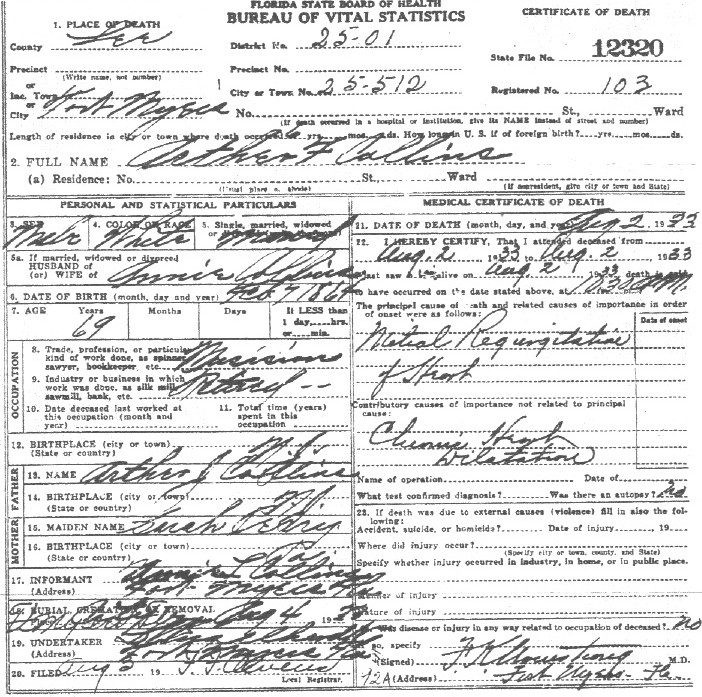 FLORIDA STATE BOARD OF HEALTH
BUREAU OF VITAL STATISTICS
CERTIFICATE OF DEATH
1. PLACE OF DEATH
County Lee
District No. 25-01
State File No. 12320
Precinct
(Write name, not number)
Precinct No.
or
Inc. Town
or
City Fort Myers
City or Town No. 25-512
Registered No. 103
No. St., Ward
(If death occurred in a hospital or institution, give its NAME instead of street and number)
Length of residence in city or town where death occurred yrs. mos. ds. How long in U. S. if of foreign birth? yrs. mos. ds.
2. FULL NAME Arther F Collins
(a) Residence: No. St., Ward
(Usual place of abode) (If nonresident, give city or town and State)
PERSONAL AND STATISTICAL PARTICULARS
3. SEX Male
4. COLOR OR RACE White
5. Single, married, widowed
or divorced
5a. If married, widowed or divorced
HUSBAND of
(or) WIFE of Annie Collins
6. DATE OF BIRTH (month, day and year) Feb 7 186
7. AGE Years Months Days If LESS than
1 day, hrs.
or min.
69
OCCUPATION
8. Trade, profession, or particular
kind of work done, as spinner,
sawyer, bookkeeper, etc. Musician
9. Industry or business in which
work was done, as silk mill,
sawmill, bank, etc.
10. Date deceased last worked at
this occupation (month and
year)
11. Total time (years)
spent in this
occupation
12. BIRTHPLACE (city or town)
(State or country) N.J.
FATHER
13. NAME Arther J Collins
14. BIRTHPLACE (city or town)
(State or country) N.J.
MOTHER
15. MAIDEN NAME Sarah
16. BIRTHPLACE (city or town)
(State or country)
17. INFORMANT Collins
(Address) Fort Myers Fla
18. BURIAL, CREMATION, OR REMOVAL
Aug 4 19
19. UNDERTAKER
(Address) Fort Myers Fla
20. FILED Aug 3 19
Local Registrar.
MEDICAL CERTIFICATE OF DEATH
21. DATE OF DEATH (month, day, and year) Aug 2 1933
22. I HEREBY CERTIFY, That I attended deceased from
Aug. 2 1933 to Aug. 2 1933
I last saw him alive on Aug 2 1933 death is said
to have occurred on the date stated above, at
The principal cause of death and related causes of importance in order
of onset were as follows:
Date of onset
Metral Regurgitation
of Heart
Contributory causes of importance not related to principal
cause:
Chronic Heart
Dilatation
Name of operation Date of
What test confirmed diagnosis? Was there an autopsy? No
23. If death was due to external causes (violence) fill in also the fol-
lowing:
Accident, suicide, or homicide? Date of injury , 19
Where did injury occur?
(Specify city or town, county, and State)
Specify whether injury occurred in industry, in home, or in public place.
Manner of injury
Nature of injury
24. Was disease or injury in any way related to occupation of deceased? No
If so, specify
(Signed) Armstrong M.D.
12A (Address) Fort Myers Fla